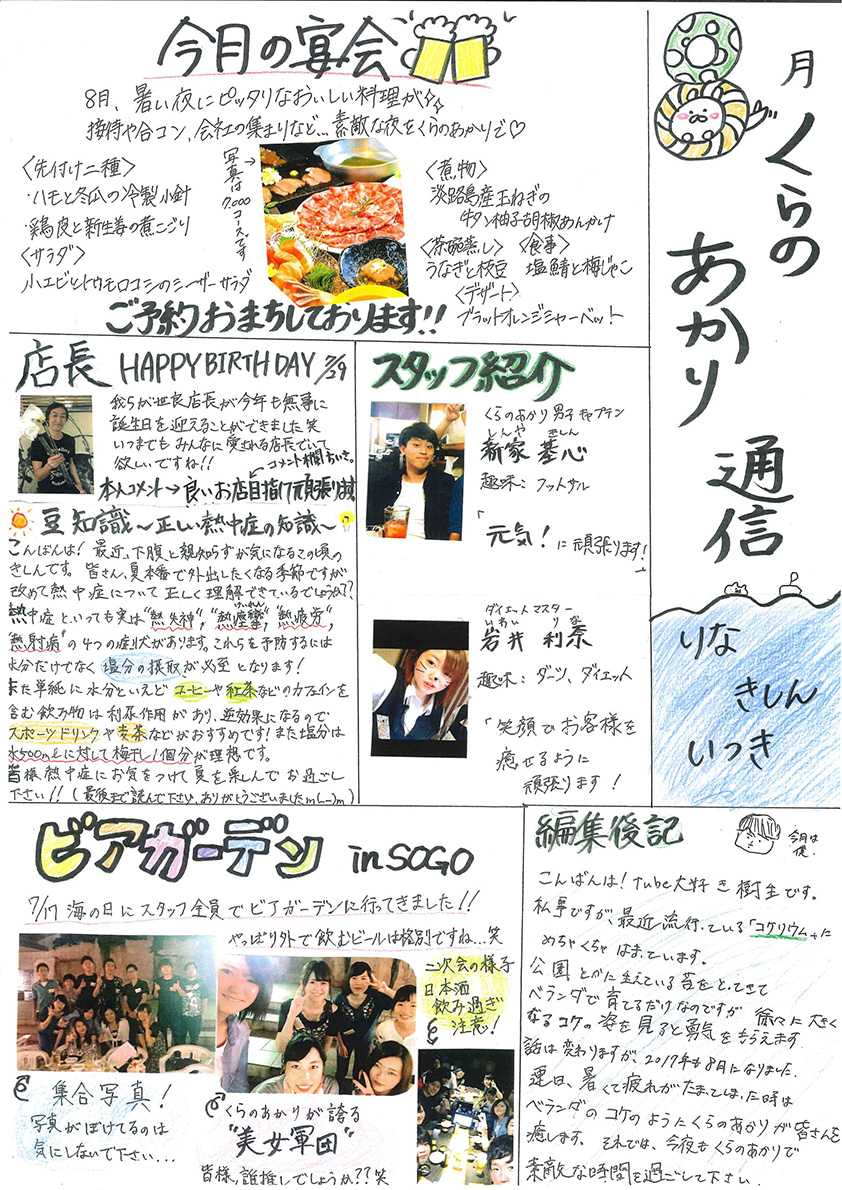 8月
くらの
あかり
通信
りな
きしん
いつき
今月の宴会
8月、暑い夜にピッタリなおいしい料理が
接待や合コン、会社の集まりなど…素敵な夜をくらのあかりで♡
〈先付け二種〉
・ハモと冬瓜の冷製小針
・鶏皮と新生姜の煮こごり
〈サラダ〉
小エビとトウモロコシのシーザーサラダ
写真は→
7,000
コースです
〈煮物〉
淡路島産玉ねぎの
牛タン柚子胡椒あんかけ
〈茶碗蒸し〉 〈食事〉
うなぎと枝豆 塩鯖と梅じゃこ
〈デザート〉
ブラッドオレンジシャーベット
ご予約おまちしております!!
店長 HAPPY BIRTHDAY 7/29
我らが世良店長が今年も無事に
誕生日を迎えることができました笑
いつまでもみんなに愛される店長でいて
欲しいですね!!
コメント欄ちいさ。
本人コメント→良いお店目指して頑張ります
豆知識～正しい熱中症の知識～
こんばんは!最近、下腹と親知らずが気になるこの頃の
きしんです。皆さん、夏本番で外出したくなる季節ですが
改めて熱中症について正しく理解できているでしょうか??
熱中症といっても実は"熱失神","熱痙攣","熱疲労",
けいれん
"熱射病"の4つの症状があります。これらを予防するには
水分だけでなく塩分の摂取が必至となります!
また単純に水分といえどコーヒーや紅茶などのカフェインを
含む飲み物は利尿作用があり、逆効果になるので
スポーツドリンクや麦茶などがおすすめです!また塩分は
水500mLに対して梅干し1個分が理想です。
皆様熱中症にお気をつけて夏を楽しんでお過ごし
下さい!!(最後まで読んで下さい、ありがとうございましたm(_ _)m)
スタッフ紹介
くらのあかり男子キャプテン
しんや きしん
新家 基心
趣味:フットサル
「元気!に頑張ります!」
ダイエットマスター
いわい りな
岩井 利奈
趣味:ダーツ、ダイエット
「笑顔でお客様を
癒せるように
頑張ります!
ビアガーデン in SOGO
7/17 海の日にスタッフ全員でビアガーデンに行ってきました!!
やっぱり外で飲むビールは格別ですね…笑
二次会の様子
日本酒
飲み過ぎ
注意!
集合写真!
写真がぼけてるのは
気にしないで下さい…
くらのあかりが誇る
"美女軍団"
皆様、誰推しでしょうか??笑
編集後記
今月は
俺.
こんばんは!tube大好き樹生です。
私事ですが、最近流行っている「コケリウム」に
めちゃくちゃはまっています。
公園とかに生えている苔をとってきて
ベランダで育てるだけなのですが 徐々に大きく
なるコケの姿を見ると勇気をもらえます
話は変わりますが、2017年も8月になりました.
連日、暑くて疲れがたまってしまった時は
ベランダのコケのようにくらのあかりが皆さんを
癒します. それでは、今夜もくらのあかりで
素敵な時間を過ごして下さい.